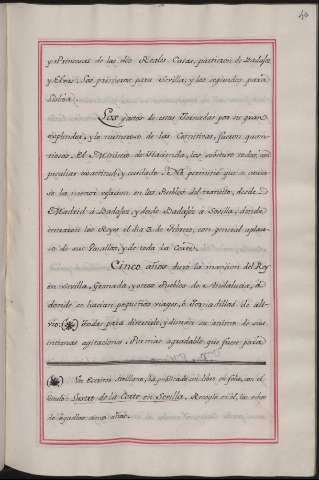 40
y Princesas de las dos Reales Casas, partieron de Badajoz
y Elvas, los primeros para Sevilla, y los segundos para
Lisboa.
Los gastos de estas Jornadas por su gran
esplendor, y lo numeroso de las Comitivas, fueron quan-
tiosos. El Ministro de Hacienda, los sostuvo todos con
peculiar exactitud, y cuidado. No permitió que se causa-
se la menor vejacion en los Pueblos del transito, desde
Madrid á Badajoz, y desde Badajoz á Sevilla, donde
entraron los Reyes el dia 3 de Febrero, con general aplauso
de sus Vasallos, y de toda la Corte.
Cinco años duró la mansion del Rey
en Sevilla, Granada, y otros Pueblos de Andalucia, á
donde se hacian pequeños viages, ó Jornadillas de ali-
vio (*) todas para divertirle, y dimitir su animo de sus
continuas agitaciones. Por mas agradable que fuese para
(*) Un Escritor Sevillano, ha publicado un libro en folio, con el
titulo: Lustro de la Corte en Sevilla. Recogió en él, las cosas
de aquellos cinco años.